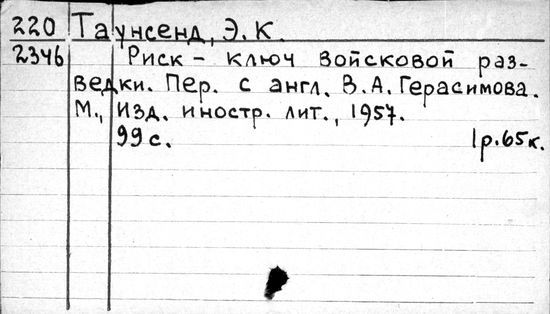 220 Таунсенд, Э. К.
2346 Риск – ключ войсковой раз-
ведки. Пер. с англ. В. А. Герасимова.
М., Изд. иностр. лит., 1957.
99 с. 1 р. 65 к.